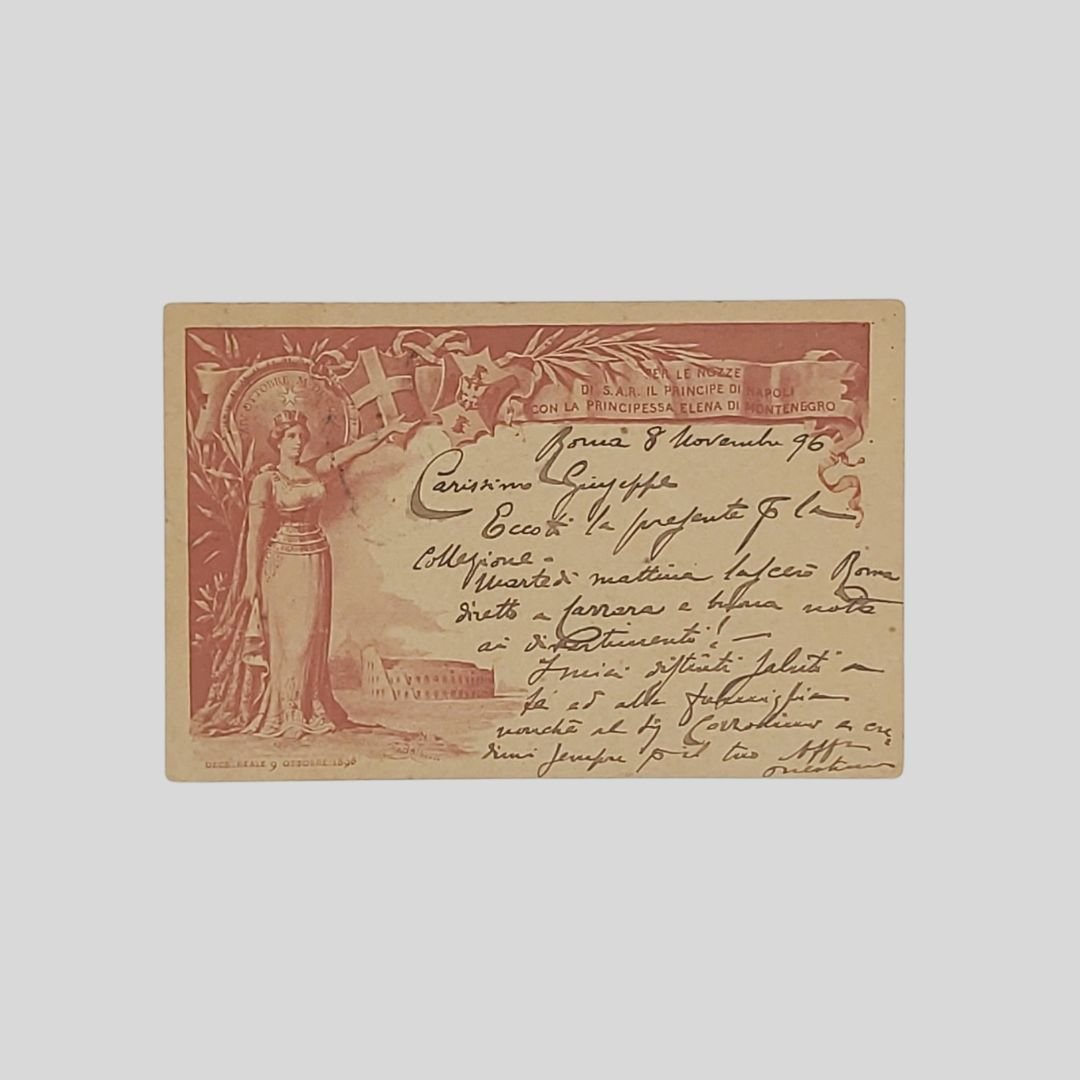 OTTOBRE M
PER LE NOZZE
DI S.A.R. IL PRINCIPE DI NAPOLI
CON LA PRINCIPESSA ELENA DI MONTENEGRO
Roma 8 Novembre 96
Carissimo Giuseppe
Eccoti la presente p la
Collezione -
Martedì mattina lascerò Roma
diretto a Carrara e buona notte
ai divertimenti! -
I miei distinti saluti a
te ed alla famiglia
nonchè al Sig e cre=
dimi sempre p il tuo Aff
DECR. REALE 9 OTTOBRE 1896